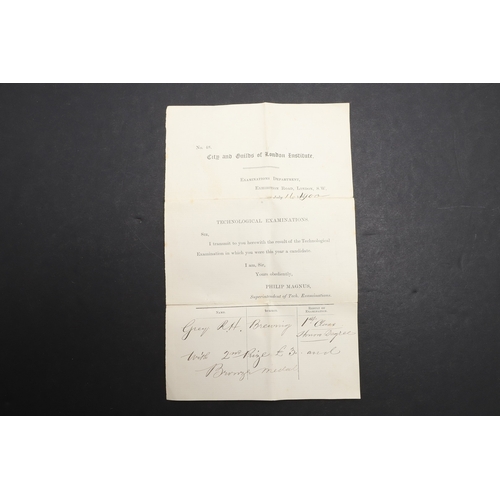 City and Guilds of London Institute
Examinations Department,
Exhibition Road, London, S.W.
1900
TECHNOLOGICAL EXAMINATIONS.
Sir,
I transmit to you herewith the result of the Technological
Examination in which you were this year a candidate.
I am, Sir,
Yours obediently,
PHILIP MAGNUS,
Superintendent of Tech. Examinations.
Name. Subject. Result of Examination.
Gray R.H. Brewing 1st Class Honours
With 2nd Prize £3 and
Bronze medal